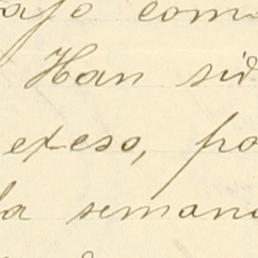 ajo com
Han sid
exeso, po
la semana